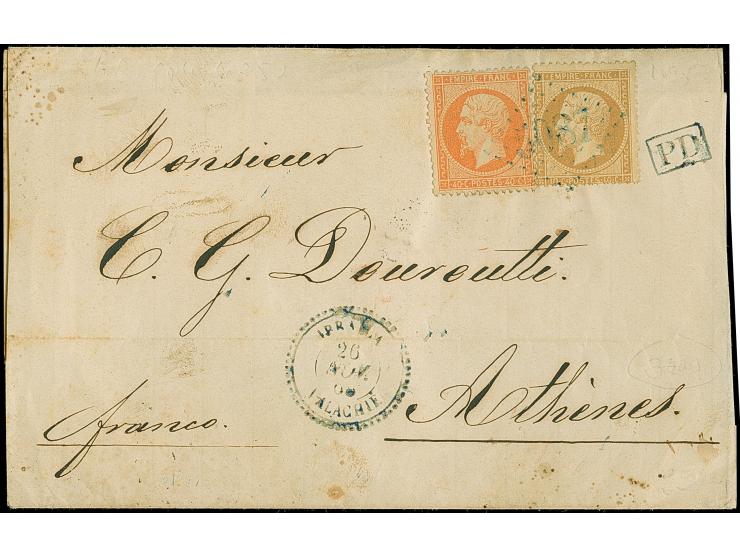 EMPIRE FRANC
EMPIRE FRANC
40 C POSTES 40 C
POSTES
PD
Monsieur
C. G. Douroutti.
IBRAILA
26
NOV.
VALACHIE
Athènes.
franco.